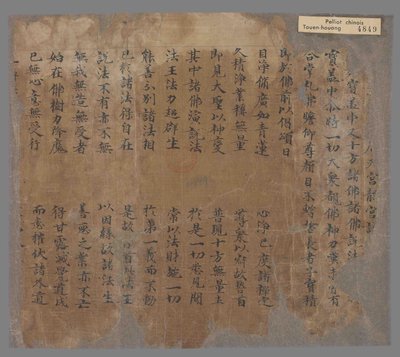 Pelliot chinois
Touen-houang 4849
寶蓋中又十方諸佛諸佛說法
寶蓋中尒時一切大衆覩佛神力歎未曾有
合掌礼佛瞻仰尊顏目不暫捨長者子寶積
即於佛前以偈頌曰
目淨脩廣如青蓮 心淨已度諸禪定
久積淨業稱無量 導衆以寂故稽首
既見大聖以神變 普現十方無量土
其中諸佛演說法 於是一切悉見聞
法王法力超群生 常以法財施一切
能善分別諸法相 於第一義而不動
已於諸法得自在 是故稽首此法王
說法不有亦不無 以因緣故諸法生
無我無造無受者 善惡之業亦不亡
始在佛樹力降魔 得甘露滅覺道成
已無心意無受行 而悉摧伏諸外道